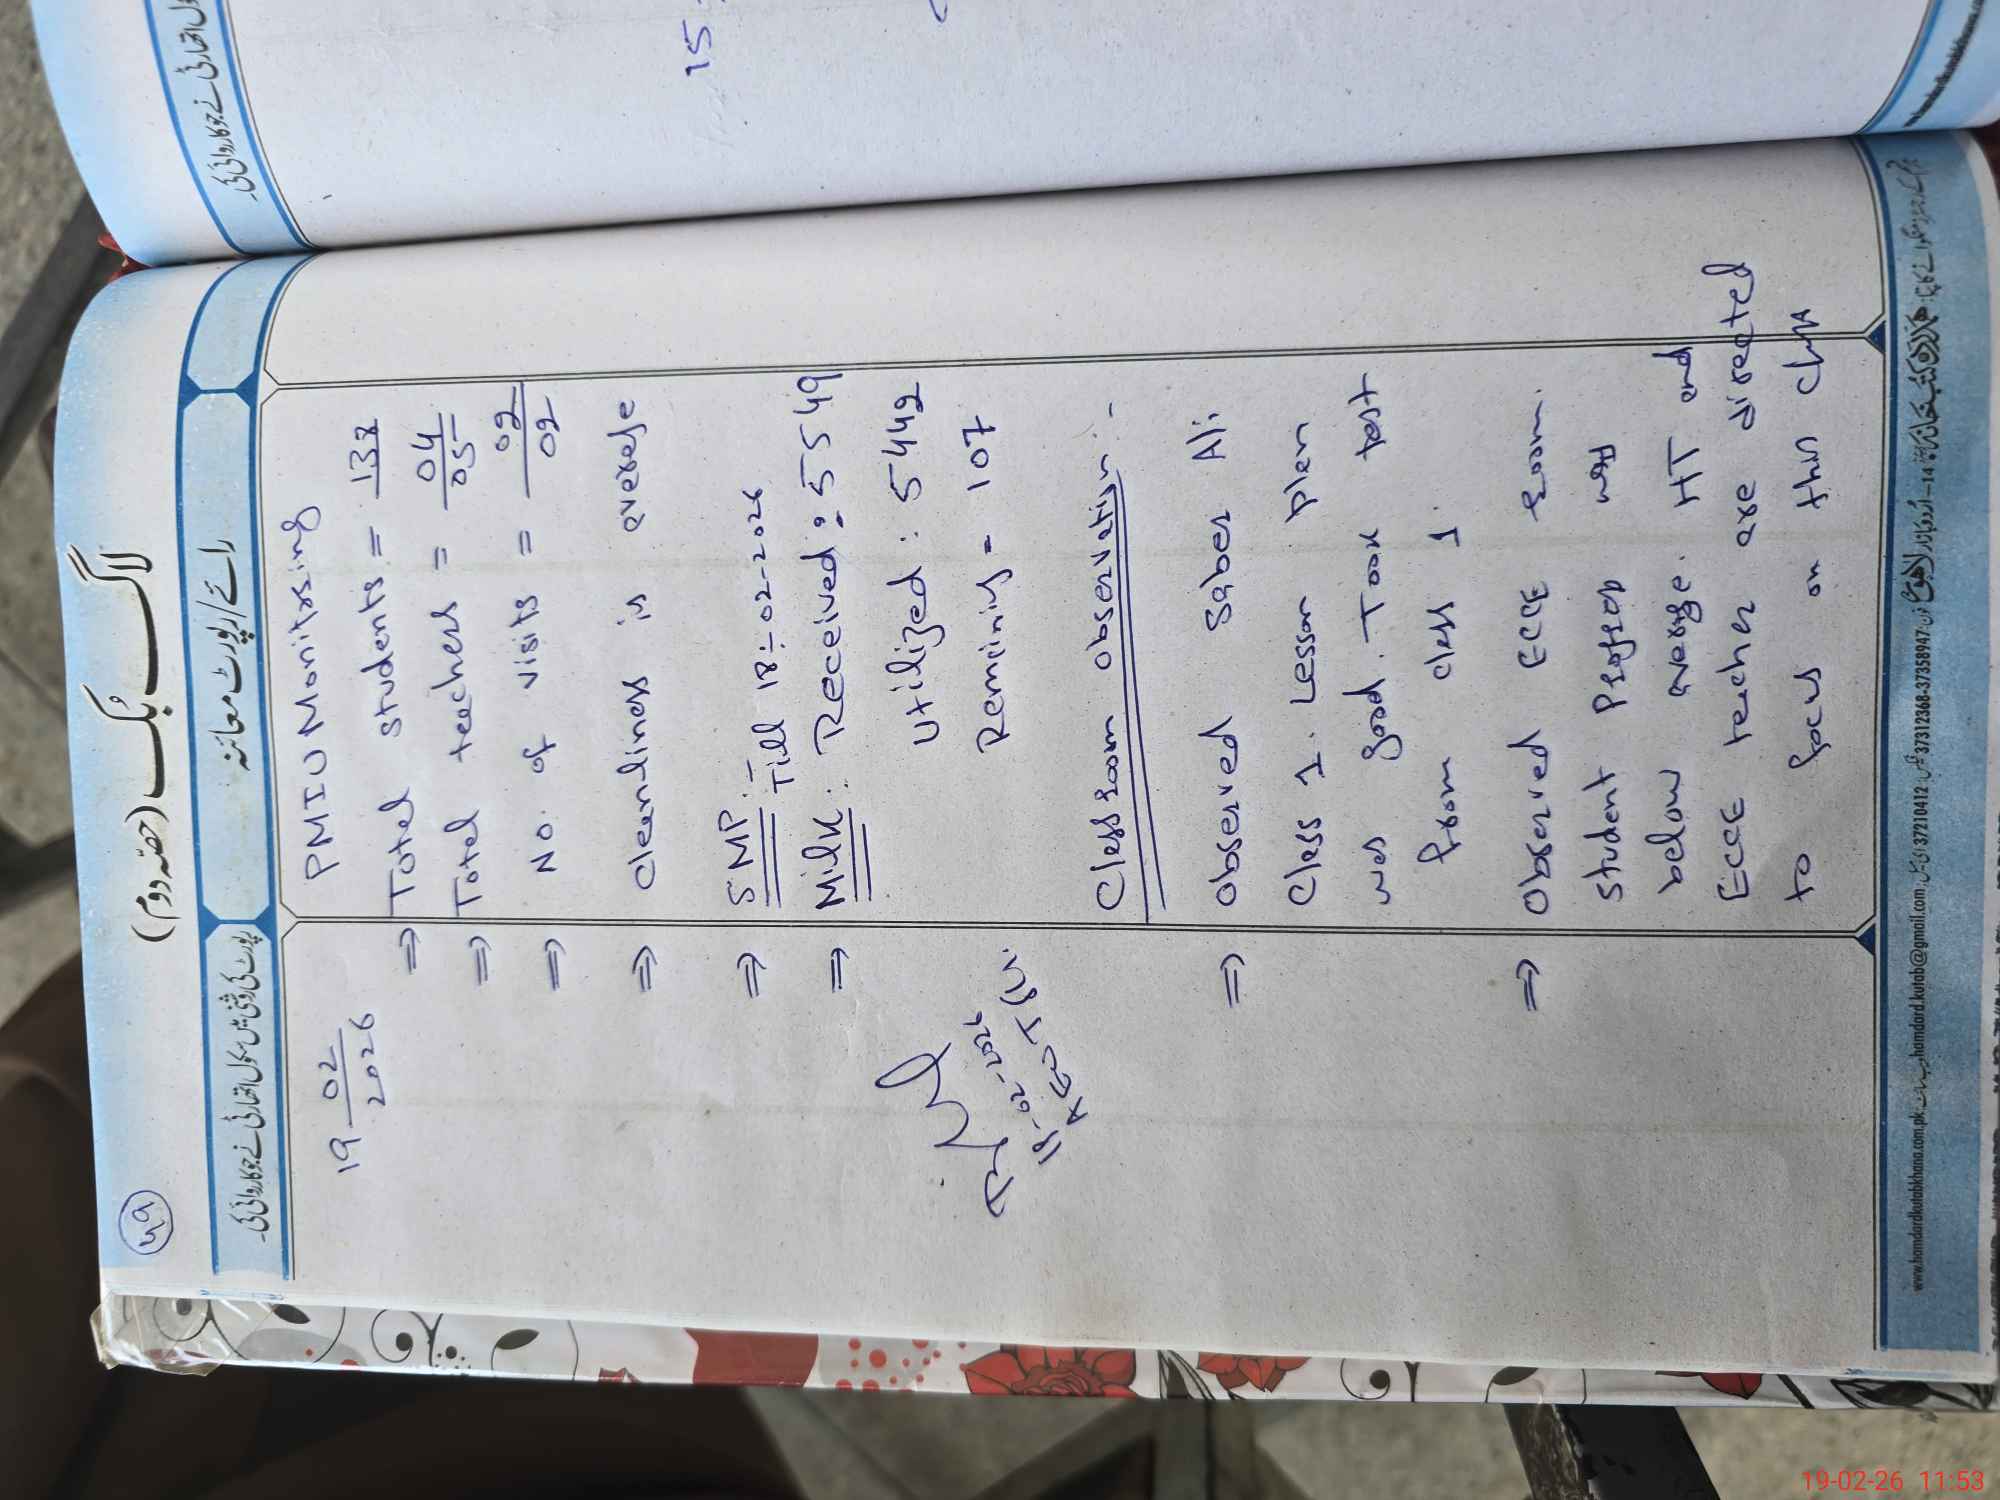 49
لاگ بُک (حصّہ دوم)
رپورٹ کی روشنی میں سکول اتھارٹی نے جو کاروائی کی۔
رائے/رپورٹ معائنہ
19 02/2026
PMIU Monitoring
⇒ Total students = 138
⇒ Total teachers = 04/05
⇒ No. of visits = 02/02
⇒ cleanliness is average
⇒ SMP:- Till 18-02-2026
⇒ Milk: Received: 5549
Utilized: 5442
Remaining - 107
19-02-2026
Classroom observation:-
⇒ Observed Saber Ali
Class 1. Lesson plan
was good. Took test
from class 1.
⇒ Observed ECCE room.
student was
below average. HT and
ECCE teacher are directed
to focus on this class
www.hamdardkutabkhana.com.pk hamdard.kutab@gmail.com 37210412 37312368-37358947
نے جو کاروائی کی۔
15
19-02-26 11:53